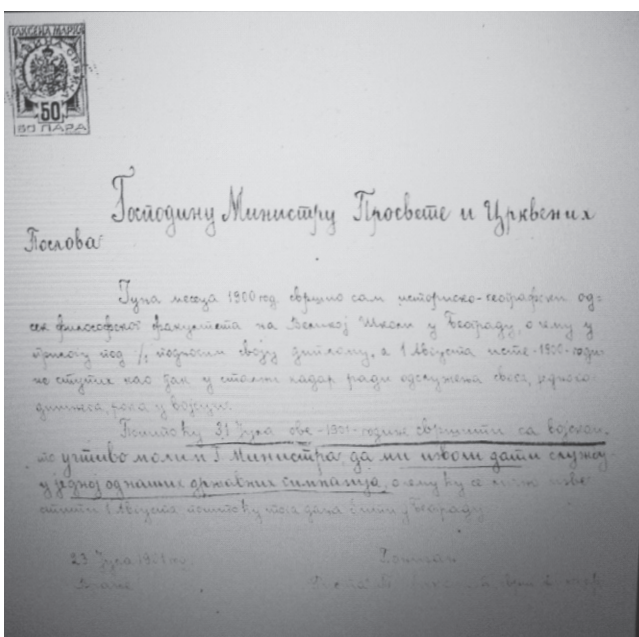 ТАКСЕНА МАРКА
50
50 ПАРА
Господину Министру Просвете и Црквених
Послова
Јуна месеца 1900 год. свршио сам историско-географски од-
сек филозофског факултета на Великој Школи у Београду, о чему у
прилогу под ·/. подносим своју диплому, а 1 Августа исте -1900- годи-
не ступих као ђак у стални кадар ради одслужења свога, једного-
дишњега, рока у војсци.
Пошто ћу 31 Јула ове -1901- године свршити са војском,
то учтиво молим Г. Министра, да ми изволи дати службу
у једној од наших државних гимназија, о чему ћу се лично изве-
стити 1 Августа, пошто ћу тога дана бити у Београду.
23 Јула 1901 год.
Врање